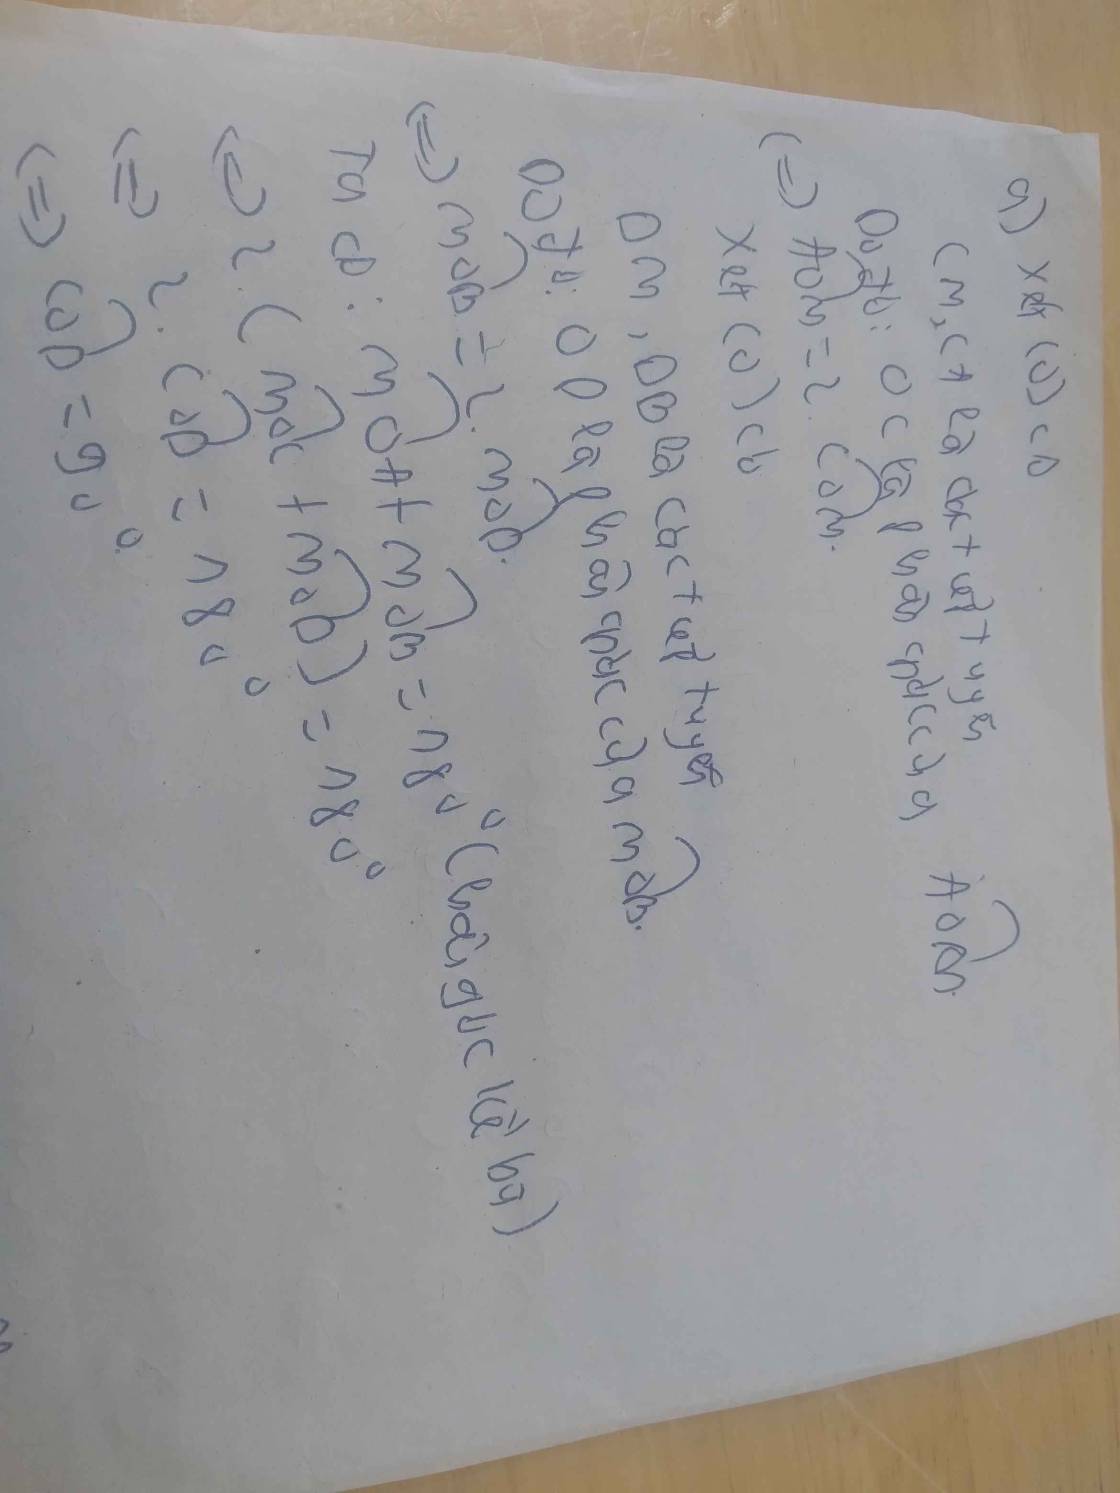 a) Xét (O) có
CM, CA là các tiếp tuyến
Do đó: OC là phân giác của AOM.
(=) AOM = 2. COM.
Xét (O) có
DM, DB là các tiếp tuyến
Do đó: OD là phân giác của MOB.
(=) MOB = 2. MOD.
Ta có: MOA + MOB = 180° (hai góc kề bù)
(=) 2. (MOC + MOD) = 180°
(=) 2. COD = 180°
(=) COD = 90°.